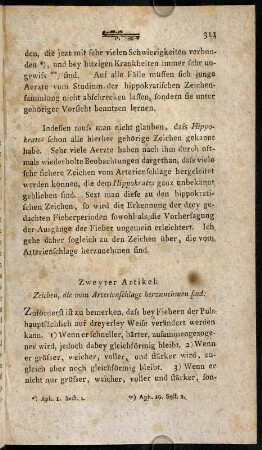 311
den, die jezt mit sehr vielen Schwierigkeiten verbun-
den *), und bey hitzigen Krankheiten immer sehr un-
gewiss **) sind. Auf alle Fälle müssen sich junge
Aerzte vom Studium der hippokratischen Zeichen-
sammlung nicht abschrecken lassen, sondern sie unter
gehöriger Vorsicht benutzen lernen.
Indessen muss man nicht glauben, dass Hippo-
krates schon alle hierher gehörige Zeichen gekannt
habe. Sehr viele Aerzte haben nach ihm durch oft-
mals wiederholte Beobachtungen dargethan, dass viele
sichere Zeichen vom Arterienschlage hergeleitet
werden können, die dem Hippokrates ganz unbekannt
geblieben sind. Sezt man diese zu den hippokrati-
schen Zeichen, so wird die Erkennung der drey ge-
dachten Fieberperioden sowohl als die Vorhersagung
der Ausgänge der Fieber ungemein erleichtert. Ich
gehe daher sogleich zu den Zeichen über, die vom
Arterienschlage herzunehmen sind.
Zweyter Artikel.
Zeichen, die vom Arterienschlage herzunehmen sind.
Zuförderst ist zu bemerken, dass bey Fiebern der Puls
hauptsächlich auf dreyerley Weise verändert werden
kann. 1) Wenn er schneller, härter, zusammengezoge-
ner wird, jedoch dabey gleichförmig bleibt. 2) Wenn
er grösser, weicher, voller, und stärker wird, zu-
gleich aber noch gleichförmig bleibt. 3) Wenn er
nicht nur grösser, weicher, voller und stärker, son-
*) Aph. 1. Sect. 1. **) Aph. 19. Sect. 2.